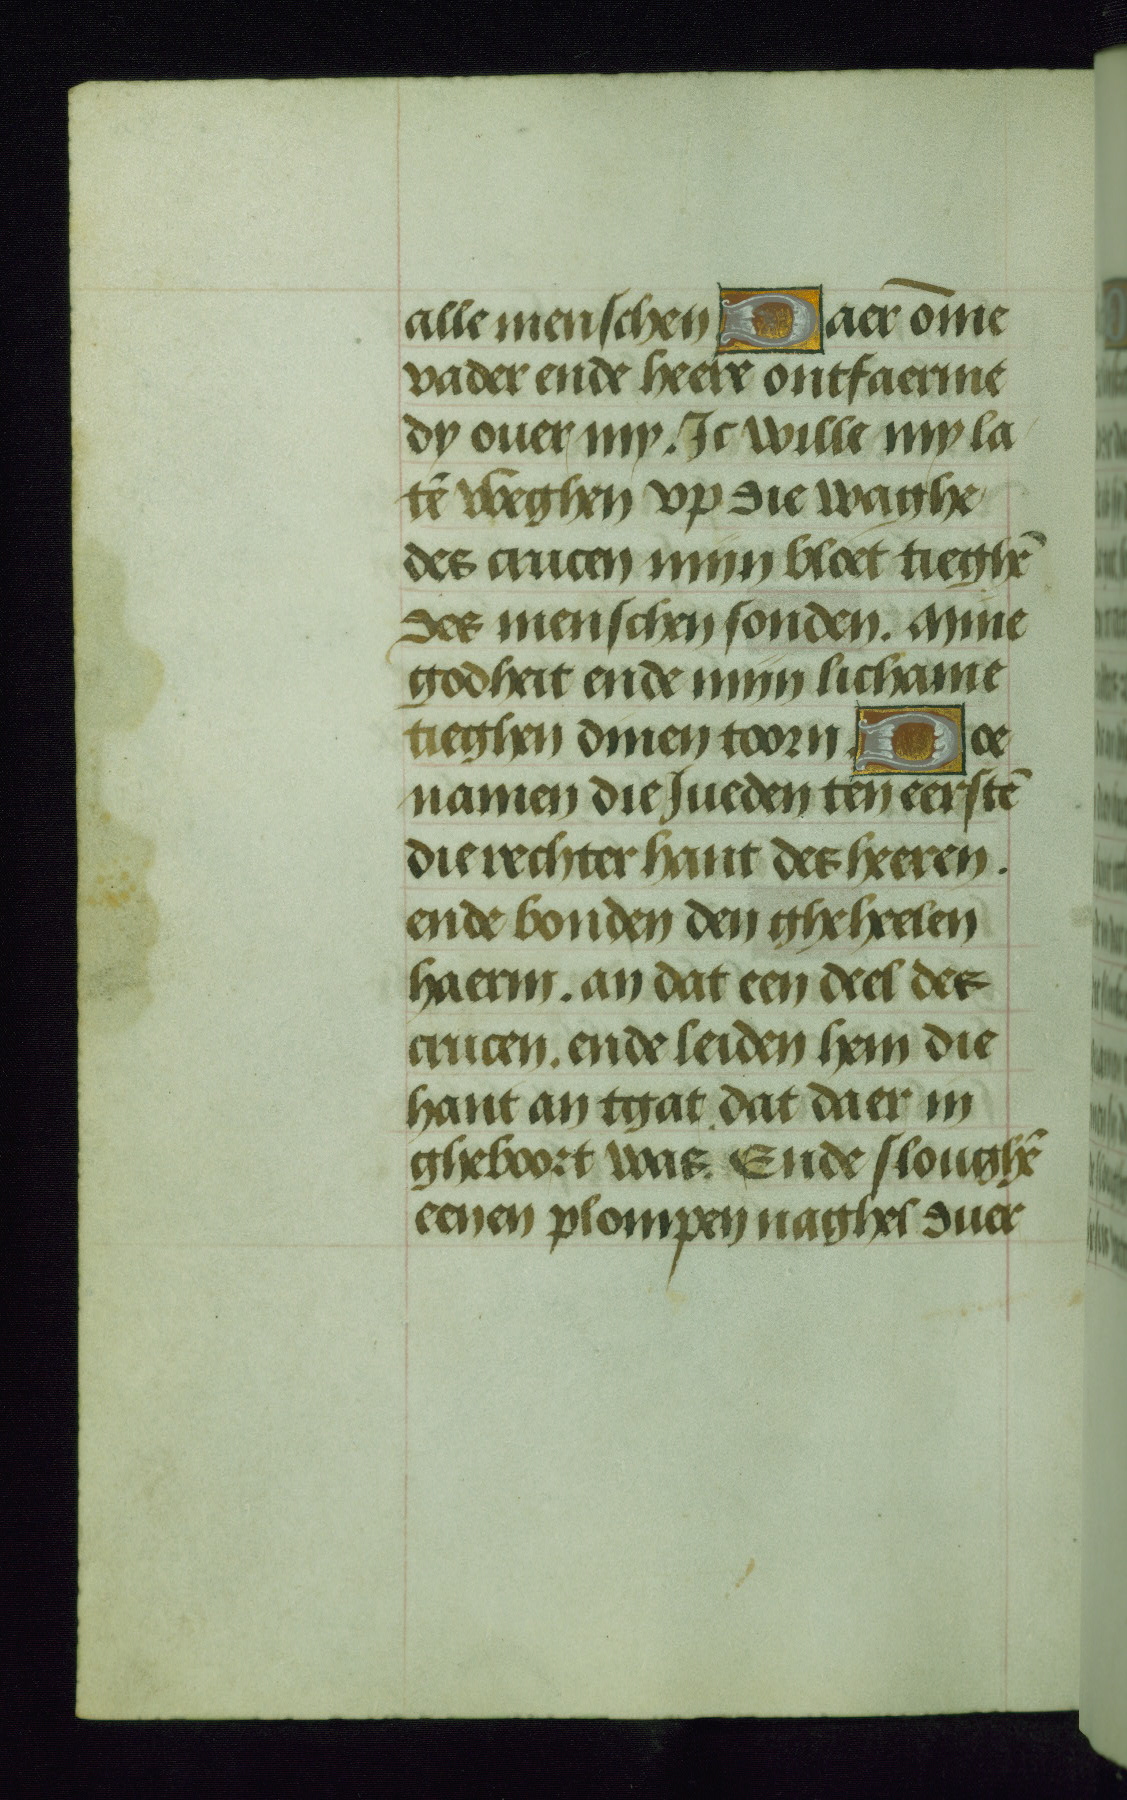 alle menschen Daer om̄e
vader ende heere ontfaerme
dy ouer my. Ic wille my la
tē weghen vp die waghe
des crucen mijn bloet tieghē
des menschen sonden. Mine
godheit ende mijn lichame
tieghen dinen toorn. Doe
namen die Jueden ten eerstē
die rechter hant des heeren.
ende bonden den gheheelen
haerm. an dat een deel des
crucen. ende leiden hem die
hant an tgat dat daer in
gheboort was. Ende sloughē
eenen plompen naghel duer